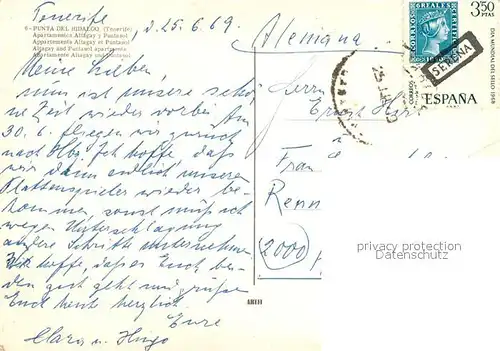 Tenerife, d. 25.6.69.
6 - PUNTA DEL HIDALGO. (Tenerife)
Apartamentos Altagay y Puntasol
Appartements Altagay et Puntasol
Altagay and Puntasol apartments
Apartamente Altagay und Puntasol
Meine Lieben
nun ist unsere schö-
ne Zeit wieder vorbei. Am
30.6. fliegen wir zurück
nach Hbg. Ich hoffe, daß
wir dann endlich unseren
Plattenspieler wieder be-
kommen, sonst muß ich
wegen Unterschlagung
andere Schritte unternehmen.
Ich hoffe, daß es Euch bei-
den gut geht und grüße
Euch heute herzlich.
Eure
Claro u. Hugo
Alemania
Herrn
Ernst
u.
Frau
Renn
(2000)
CORREOS REALES
3,50
PTAS
DIA MUNDIAL DEL SELLO
SERENA
CORREOS
ESPAÑA
25
privacy protection